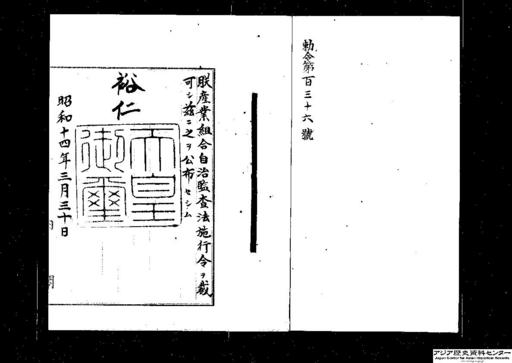 勅令第百三十六號
朕産業組合自治監査法施行令ヲ裁
可シ茲ニ之ヲ公布セシム
裕仁
天皇御璽
昭和十四年三月三十日
アジア歴史資料センター
Japan Center for Asian Historical Records